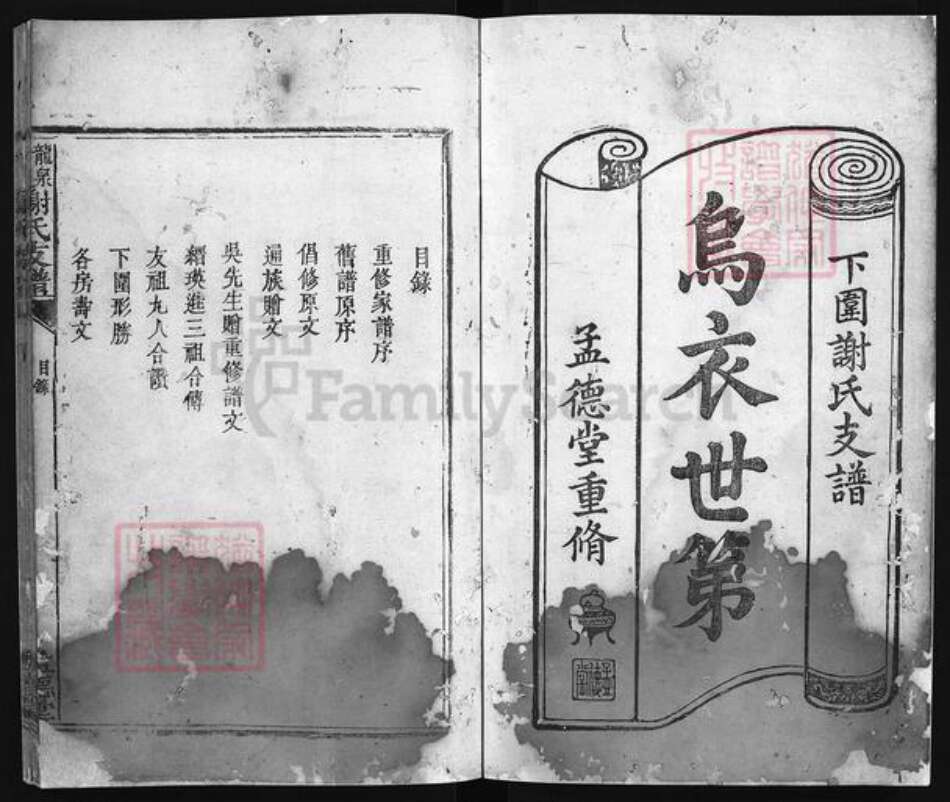 下圍謝氏支譜
烏衣世第
孟德堂重脩
目錄
重修家譜序
舊譜原序
倡修原文
通族贈文
吳先生贈重修譜文
縉瑛進三祖合傳
友祖九人合讚
下圍形勝
各房壽文
龍泉
謝氏支譜
目錄
FamilySearch